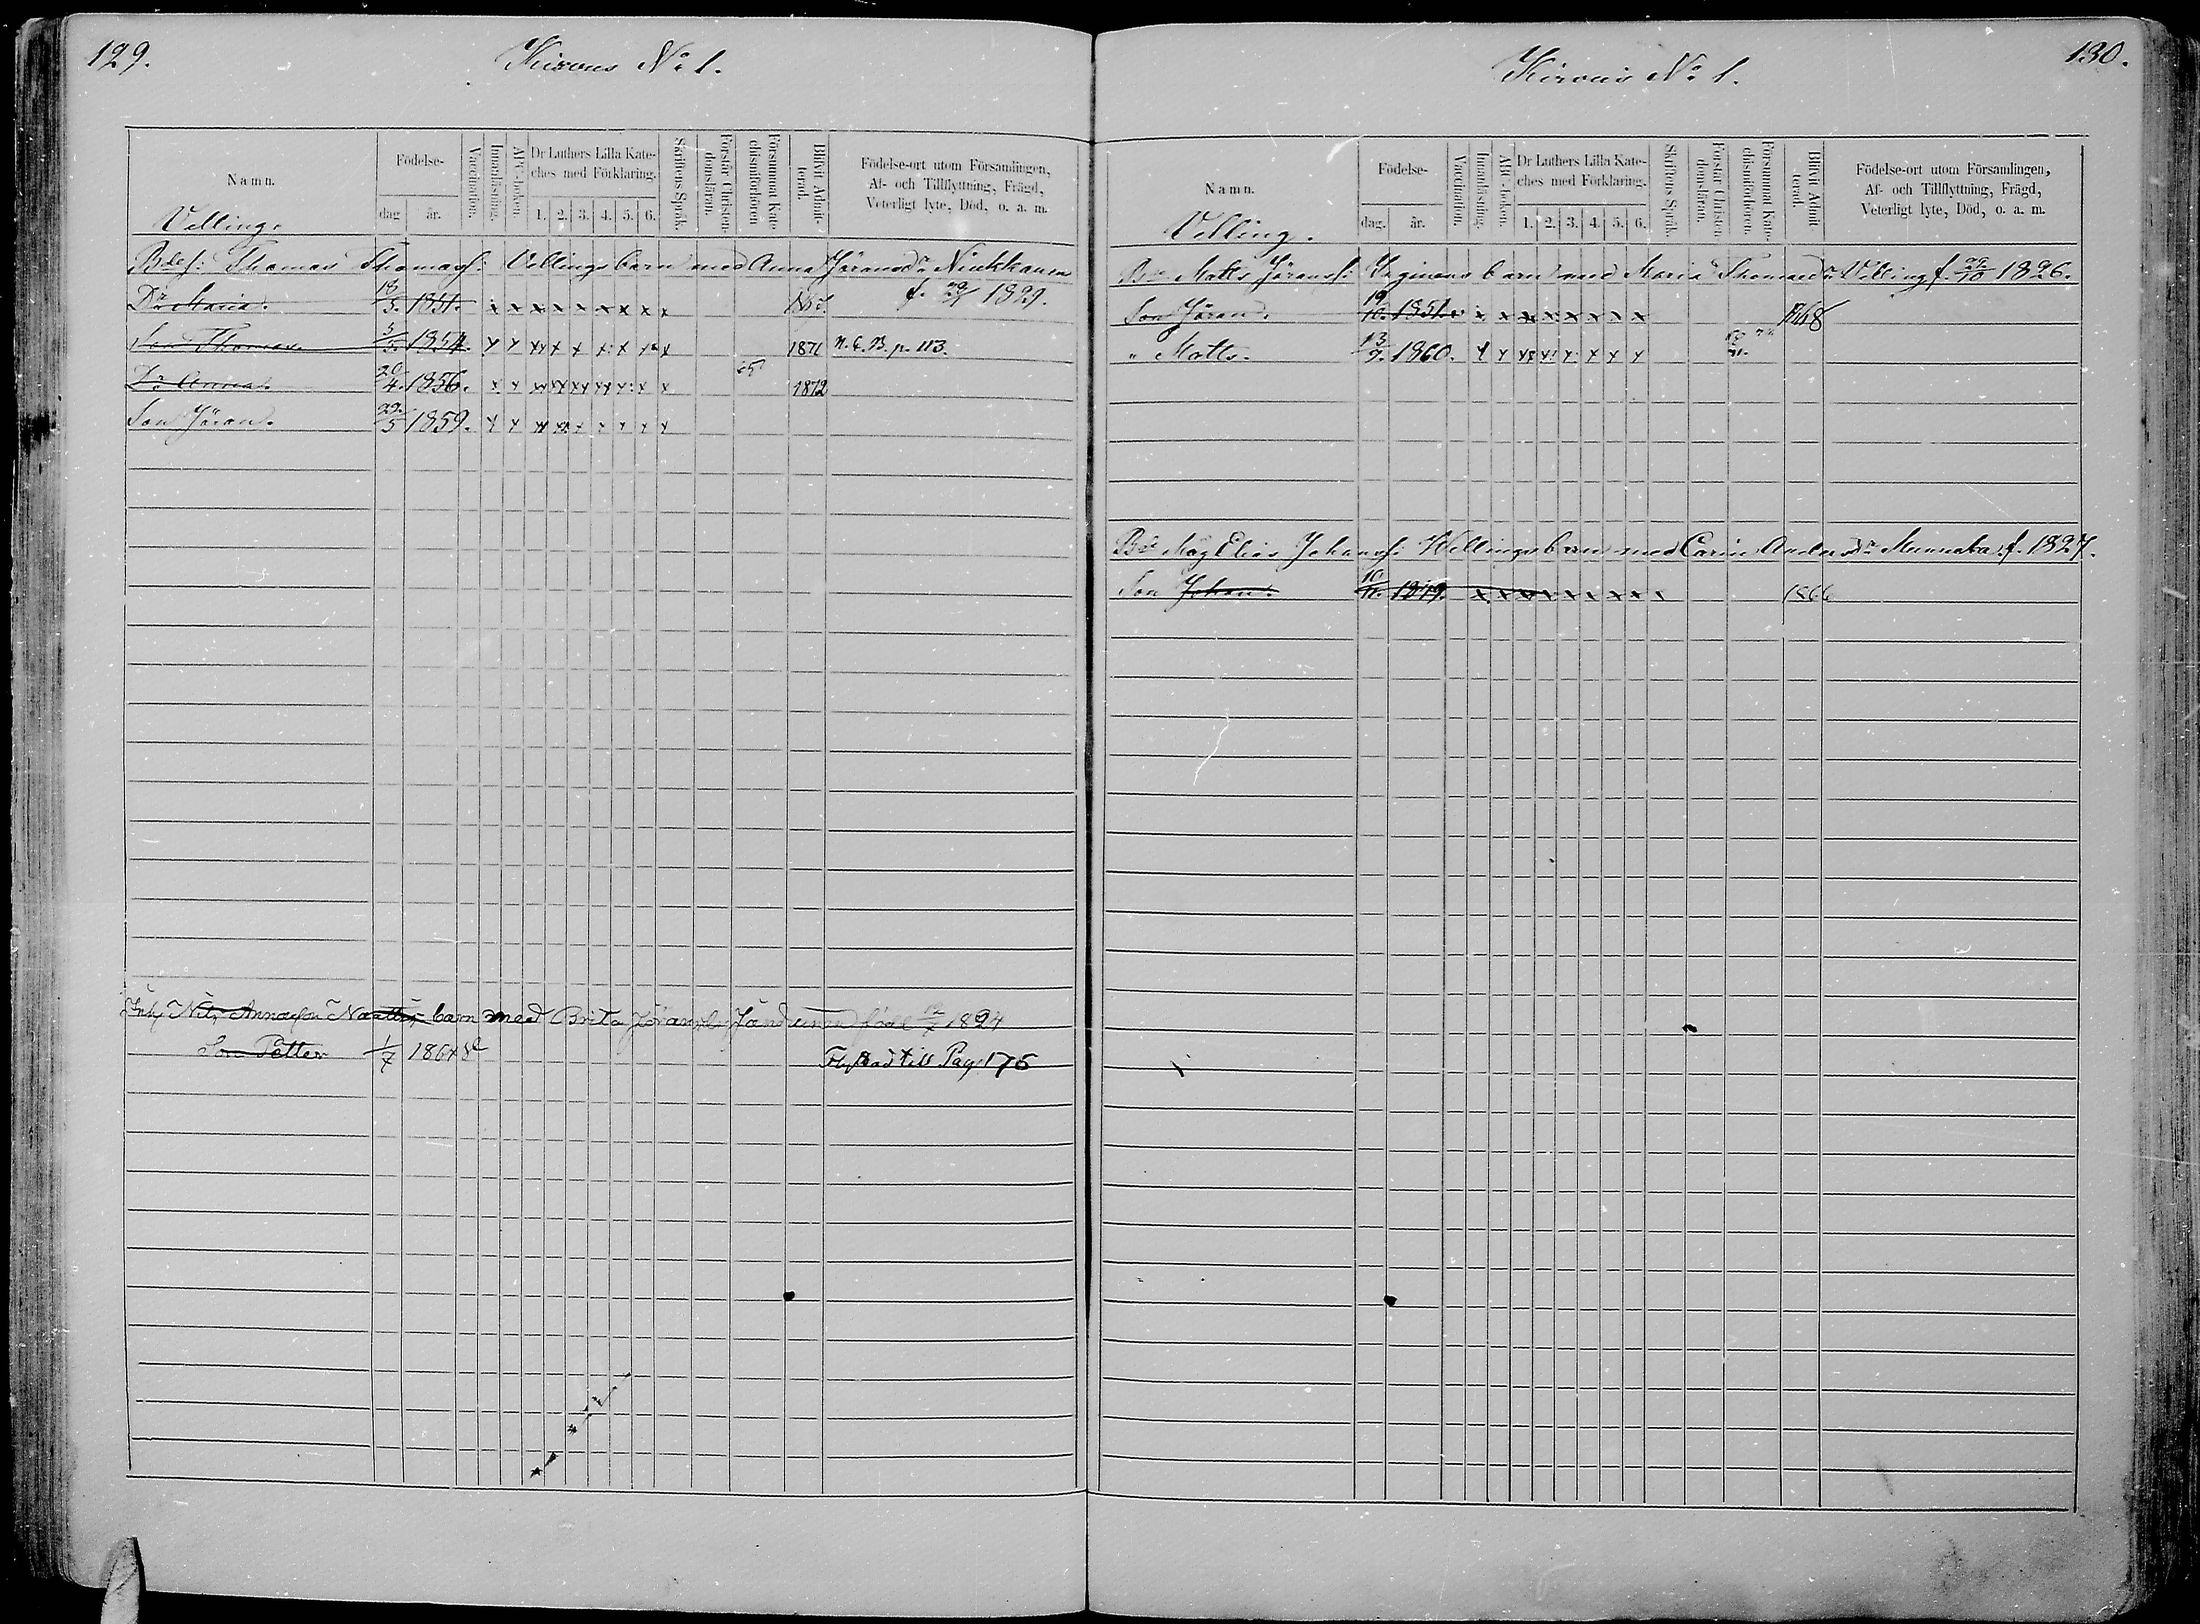 129.
Kirons No 1.
Namn.
Födelse-
dag
år.
Vaccination.
Innanläsning.
ABC-boken.
Dr Luthers Lilla Kate-
ches med Förklaring.
1. 2. 3. 4. 5. 6.
Skriftens Språk.
Förstår Christen-
domsläran.
Försummat Kate-
chismiförhören.
Blifvit Admit-
terad.
Födelse-ort utom Församlingen,
Af- och Tillflyttning, Frägd,
Veterligt lyte, Död, o. a. m.
Velling.
Thomas Thomass: Vellings barn med Anna Jöransdr Niukkanen
Dr Maria. 18/3. 1851. x x x x x x x x x f. 1829.
Son Thomas. 5/5. 1854. x x x x x x x x x 1871 N. C. B. p. 113.
Dr Anna. 20/4. 1856. x x x x x x x x x 1872
Son Jöran. 29/5 1859. x x x x x x x x x
Nils Annasson Naatti, barn med Brita född 1824
Son Petter 1/7 1864
till Pag 175
130.
Kirons No 1.
Namn.
Födelse-
dag.
år.
Vaccination.
Innanläsning.
ABC-boken.
Dr Luthers Lilla Kate-
ches med Förklaring.
1. 2. 3. 4. 5. 6.
Skriftens Språk.
Förstår Christen-
domsläran.
Försummat Kate-
chismiförhören.
Blifvit Admit-
terad.
Födelse-ort utom Församlingen,
Af- och Tillflyttning, Frägd,
Veterligt lyte, Död, o. a. m.
Velling.
Matts Jöranss: barn med Maria Thomasdr Velling f. 1826.
Son Jöran. 19/10. 1851. x x x x x x x x x 1868
" Matts. 13/9. 1860. x x x x x x x x x
Måg Elias Johanss: Wellings barn med Carin Andersdr f. 1827.
Son Johan. 10/11. 1849. x x x x x x x x x 1866